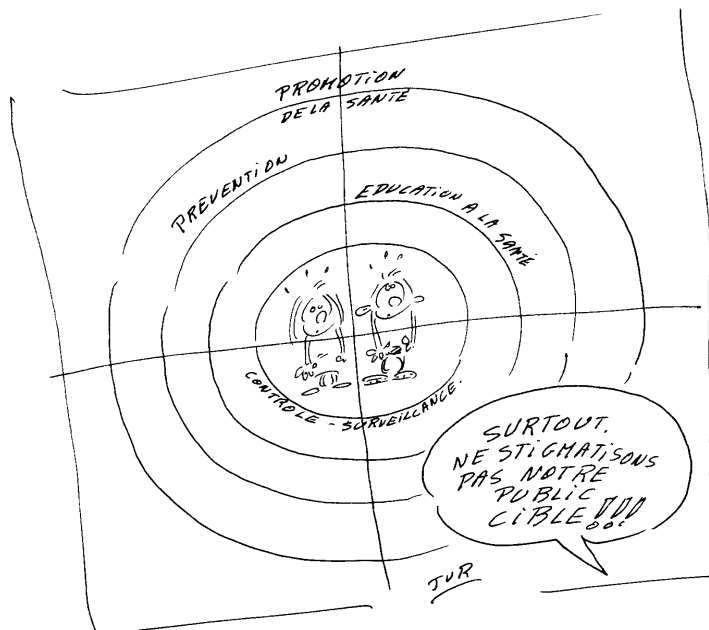 PROMOTION
DE LA SANTE
PREVENTION
EDUCATION A LA SANTE
CONTROLE - SURVEILLANCE.
SURTOUT.
NE STIGMATISONS
PAS NOTRE
PUBLIC
CIBLE !!!
JUR